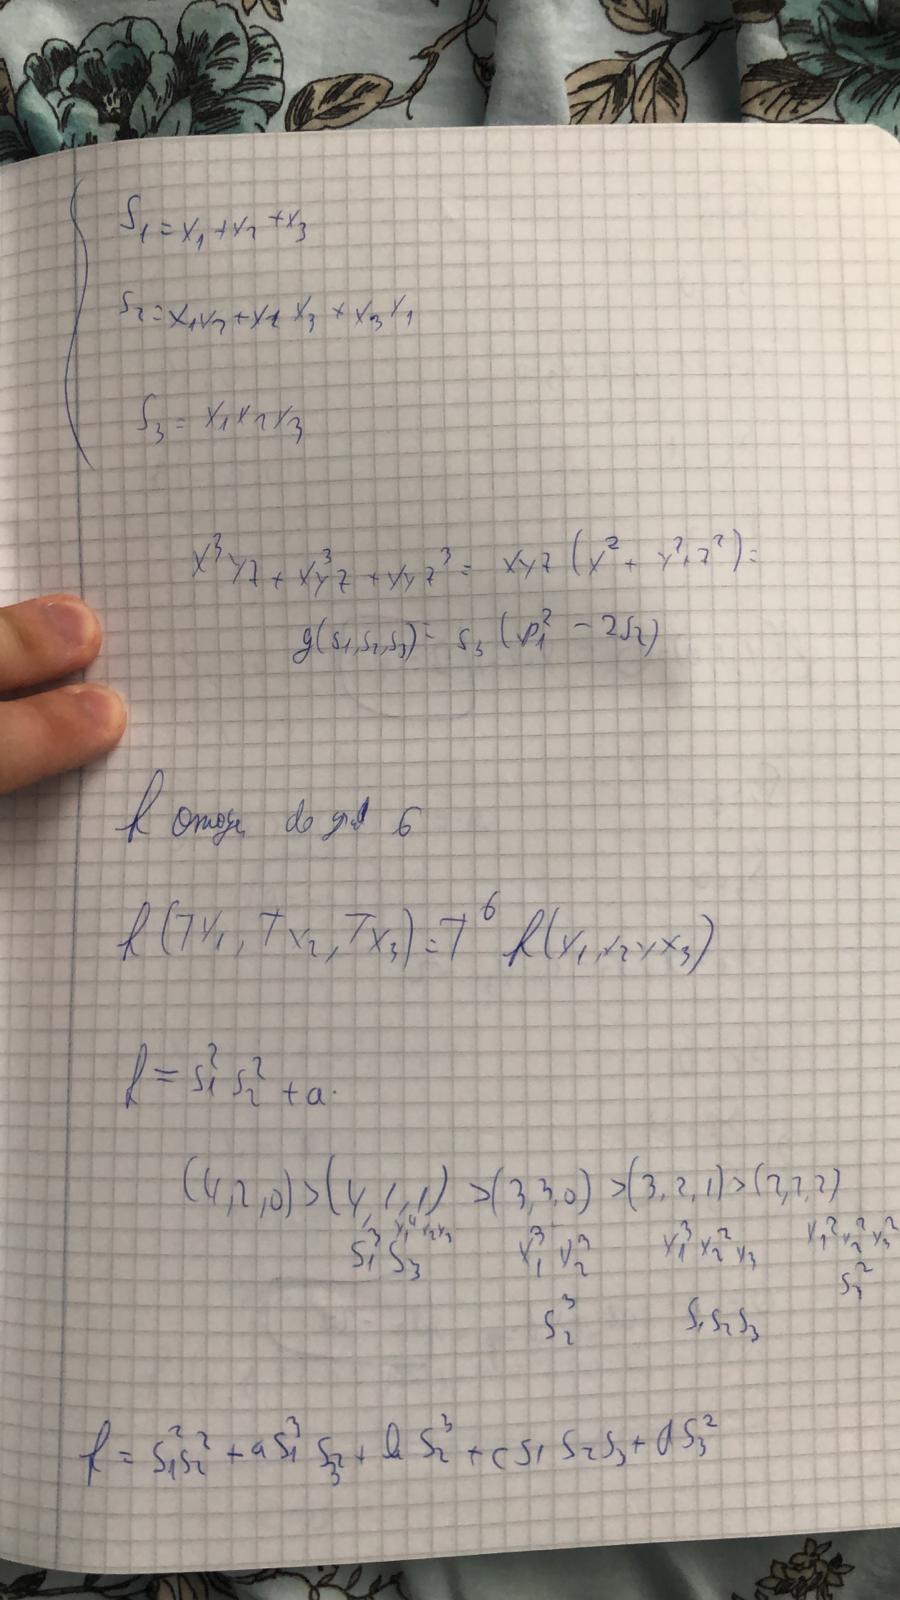 S₁ = x₁ + x₂ + x₃
S₂ = x₁x₂ + x₂x₃ + x₃x₁
S₃ = x₁x₂x₃
x³yz + xy³z + xyz³ = xyz (x² + y² + z²) =
g(s₁,s₂,s₃) = s₃ (p₁² - 2s₂)
f de grad 6
f(Tx₁, Tx₂, Tx₃) = T⁶ f(x₁, x₂, x₃)
f = s₁² s₂² + a.
(4,2,0) > (4,1,1) > (3,3,0) > (3,2,1) > (2,2,2)
x₁⁴x₂x₃ x₁³x₂³ x₁³x₂²x₃ x₁²x₂²x₃²
s₁³ s₃ s₂³ s₁s₂s₃ s₃²
f = s₁²s₂² + a s₁³ s₃ + b s₂³ + c s₁ s₂ s₃ + d s₃²